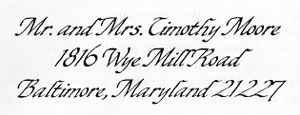 Mr. and Mrs. Timothy Moore
1816 Wye Mill Road
Baltimore, Maryland 21227